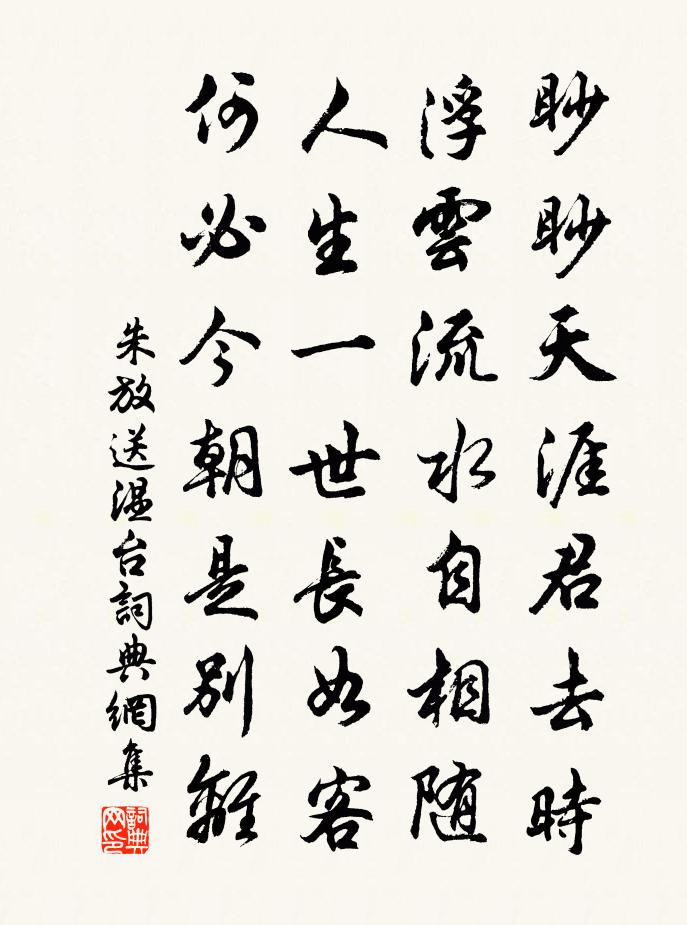 眇眇天涯君去時
浮雲流水自相随
人生一世長如客
何必今朝是別離
朱放送温台詞典網集
詞典网印